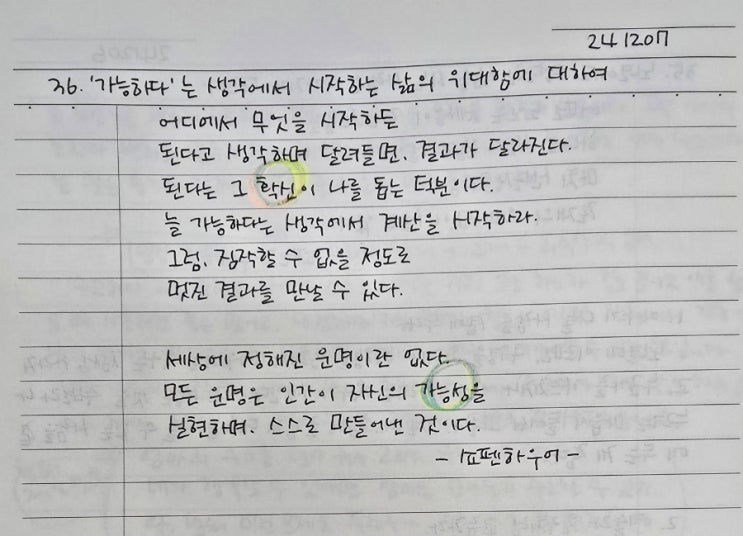 241207
36. '가능하다'는 생각에서 시작하는 삶의 위대함에 대하여
어디에서 무엇을 시작하든
된다고 생각하며 달려들면, 결과가 달라진다.
된다는 그 확신이 나를 돕는 덕분이다.
늘 가능하다는 생각에서 계산을 시작하라.
그럼, 짐작할 수 없을 정도로
멋진 결과를 만날 수 있다.
세상에 정해진 운명이란 없다.
모든 운명은 인간이 자신의 가능성을
실현하며, 스스로 만들어낸 것이다.
- 쇼펜하우어 -